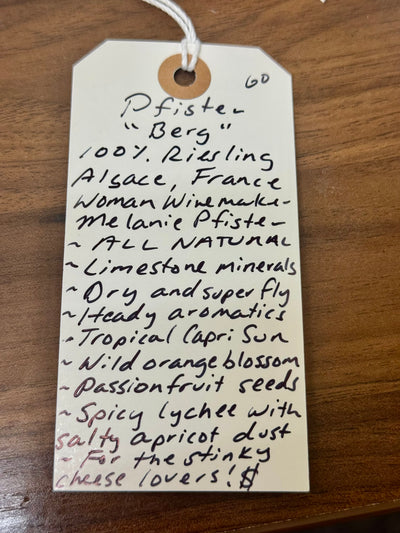 60
Pfister
"Berg"
100% Riesling
Alsace, France
Woman Winemaker
Melanie Pfister
~ ALL NATURAL
~ Limestone minerals
~ Dry and super fly
~ Heady aromatics
~ Tropical Capri Sun
~ Wild orange blossom
~ Passionfruit seeds
~ Spicy lychee with
salty apricot dust
~ For the stinky
cheese lovers! $